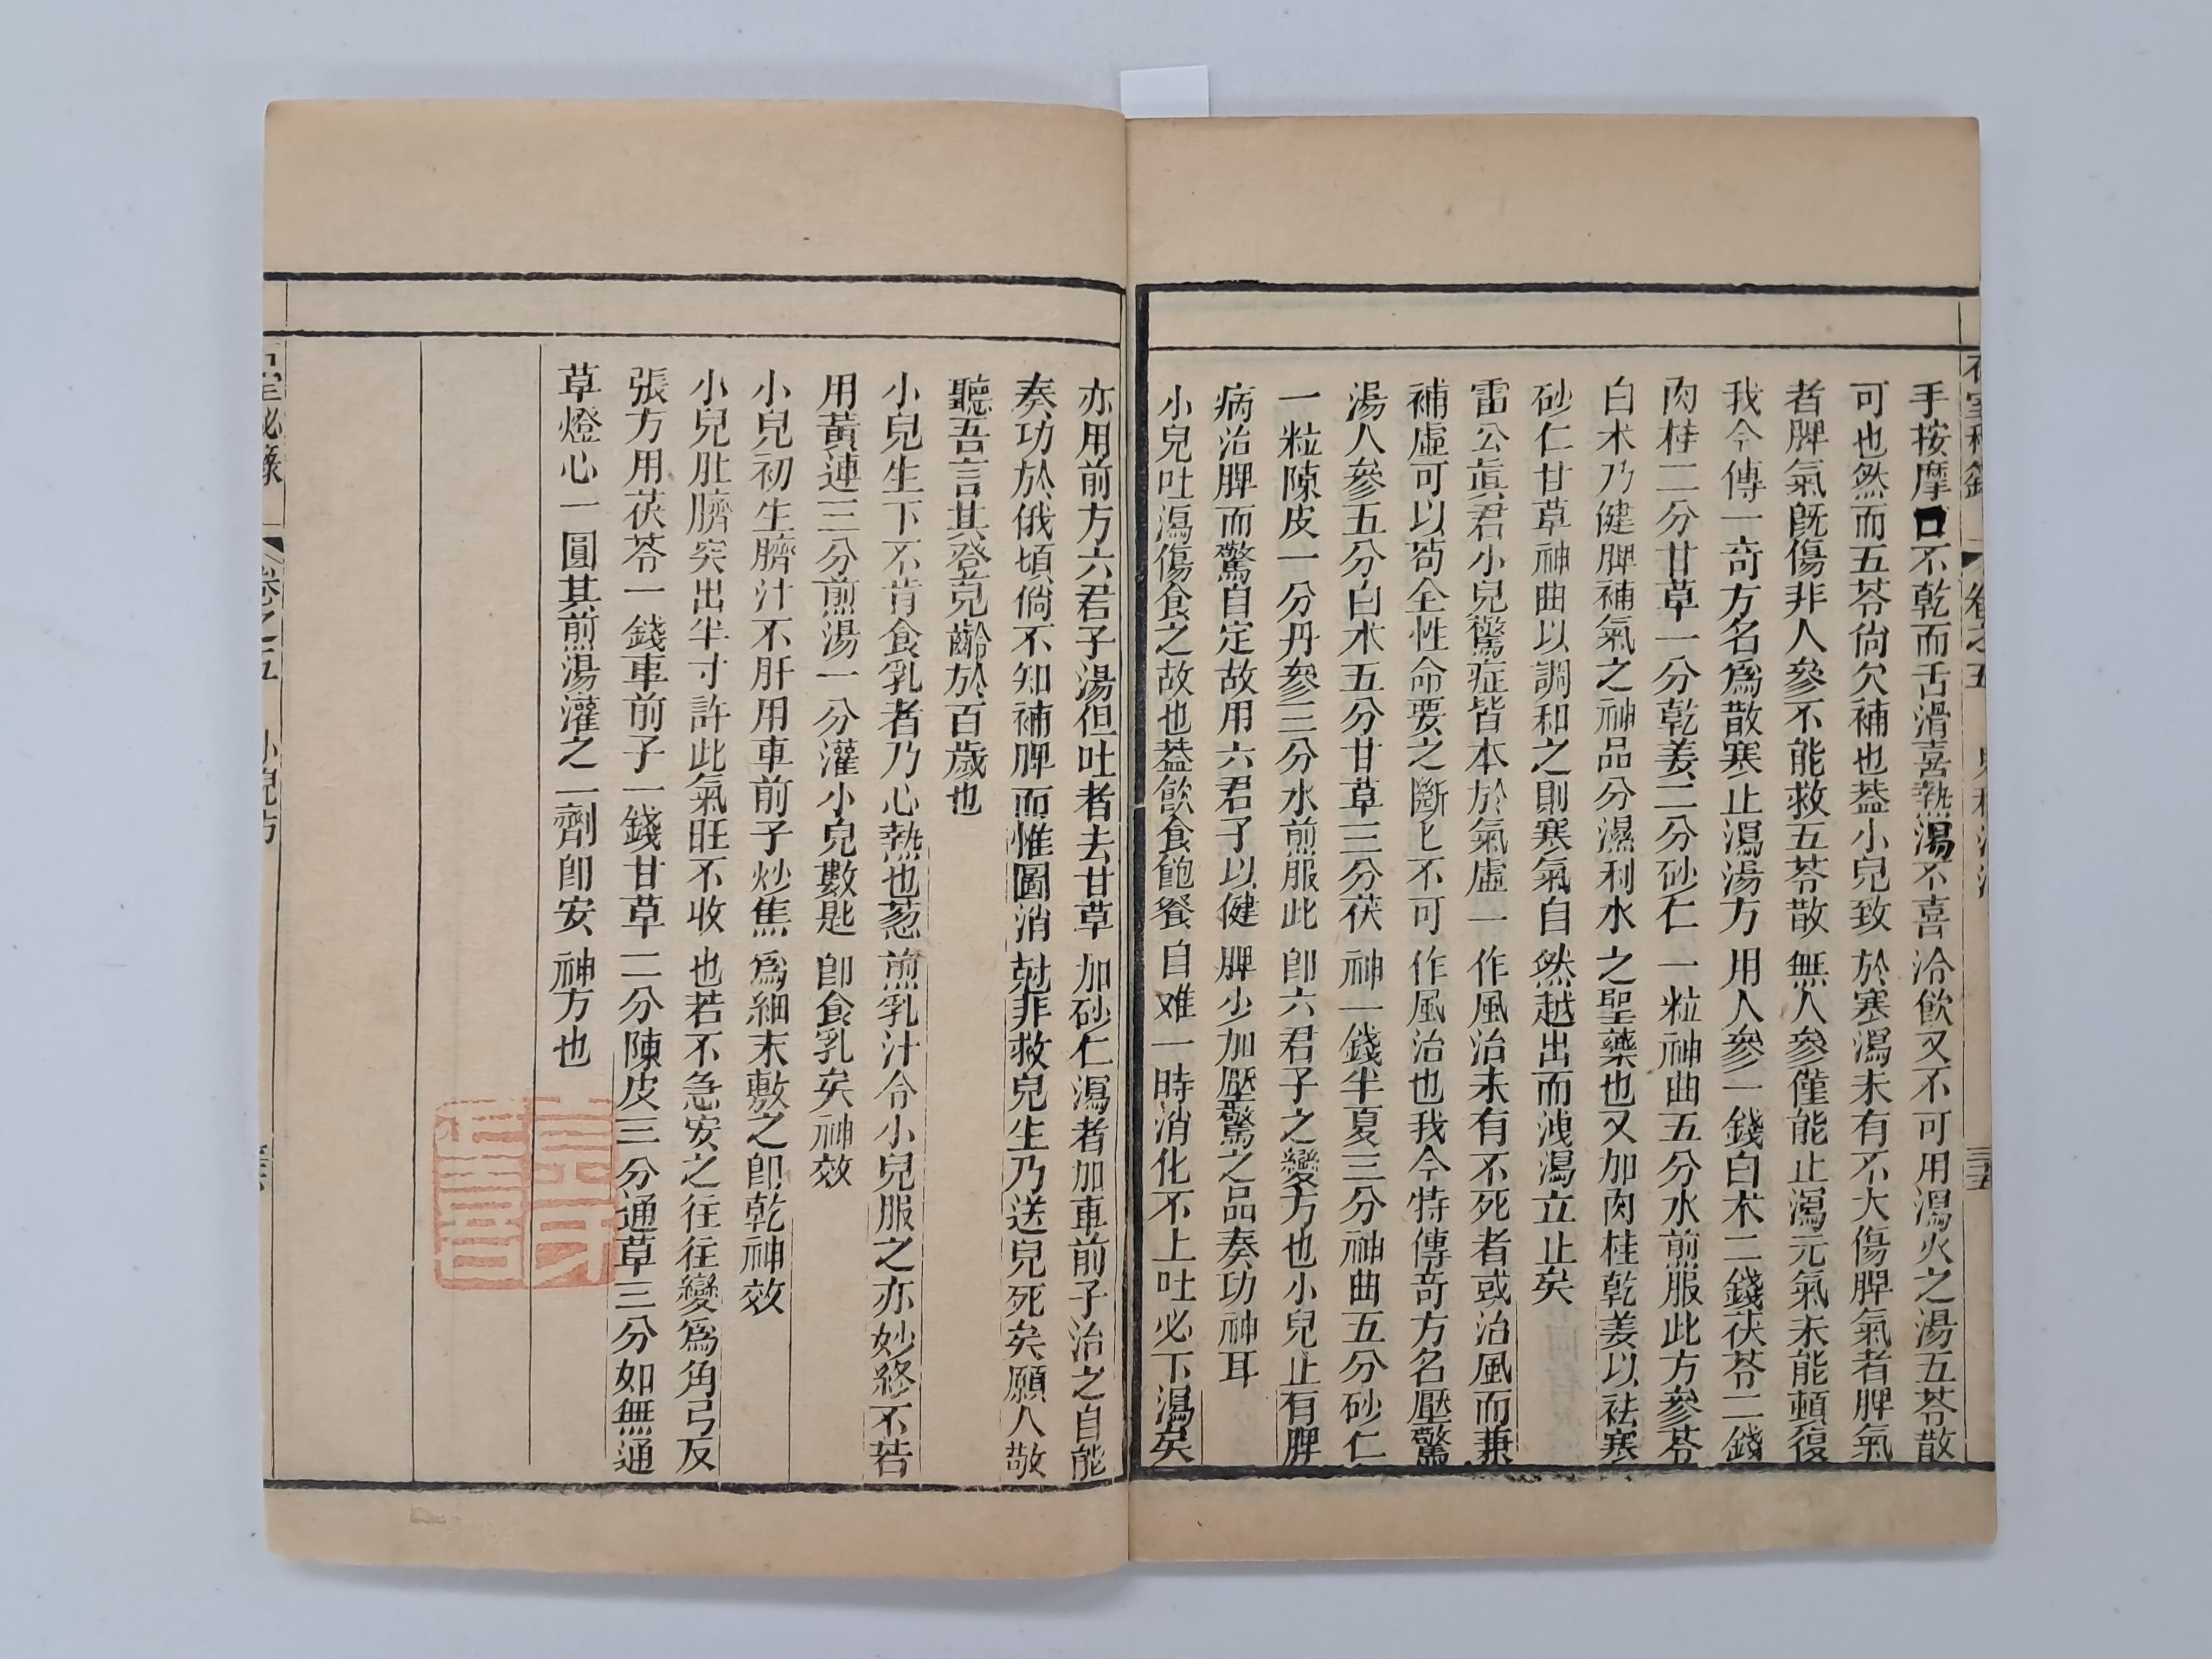 手按摩口不乾而舌滑喜熱湯不喜冾飲又不可用瀉火之湯五苓散
可也然而五苓尙欠補也葢小兒致於寒瀉未有不大傷脾氣者脾氣
者脾氣旣傷非人參不能救五苓散無人參僅能止瀉元氣未能頓復
我今傳一奇方名爲散寒止瀉湯方用人參一錢白朮二錢茯苓二錢
肉桂二分甘草一分乾姜二分砂仁一粒神曲五分水煎服此方參苓
白朮乃健脾補氣之神品分濕利水之聖藥也又加肉桂乾姜以袪寒
砂仁甘草神曲以調和之則寒氣自然越出而洩瀉立止矣
雷公眞君小兒驚症皆本於氣虛一作風治未有不死者或治風而兼
補虛可以苟全性命要之斷乚不可作風治也我今特傳奇方名壓驚
湯人參五分白朮五分甘草三分茯神一錢半夏三分神曲五分砂仁
一粒陳皮一分丹參三分水煎服此卽六君子之變方也小兒止有脾
病治脾而驚自定故用六君子以健脾少加壓驚之品奏功神耳
小兒吐瀉傷食之故也葢飮食飽餐自难一時消化不上吐必下瀉矣
亦用前方六君子湯但吐者去甘草加砂仁瀉者加車前子治之自能
奏功於俄頃倘不知補脾而惟圖消尅非救兒生乃送兒死矣願人敬
聽吾言其登覓齡於百歲也
小兒生下不肯食乳者乃心熱也葱煎乳汁令小兒服之亦妙終不若
用黃連三分煎湯一分灌小兒數匙卽食乳矣神效
小兒初生臍汁不肝用車前子炒焦爲細末敷之卽乾神效
小兒肚臍突出半寸許此氣旺不收也若不急安之往往變爲角弓反
張方用茯苓一錢車前子一錢甘草二分陳皮三分通草三分如無通
草燈心一圓其煎湯灌之一劑卽安神方也
卷之五
小兒方
卷之五
三五